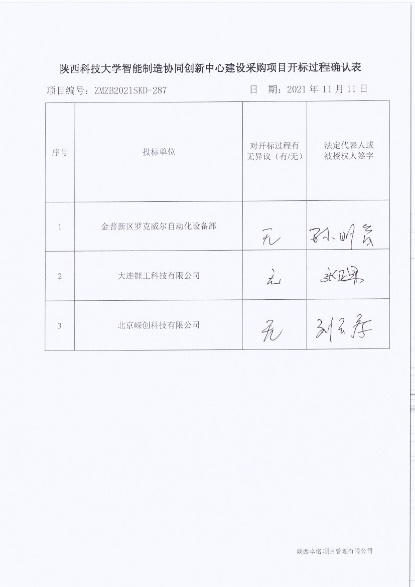 陕西科技大学智能制造协同创新中心建设采购项目开标过程确认表
项目编号：ZMZB2021SKD-287 日 期：2021 年 11 月 11 日
序号 投标单位 对开标过程有无异议（有/无） 法定代表人或被授权人签字
1 金普新区罗克威尔自动化设备部 无
2 大连 工科技有限公司 无
3 北京 创科技有限公司 无
陕西 项目管理有限公司